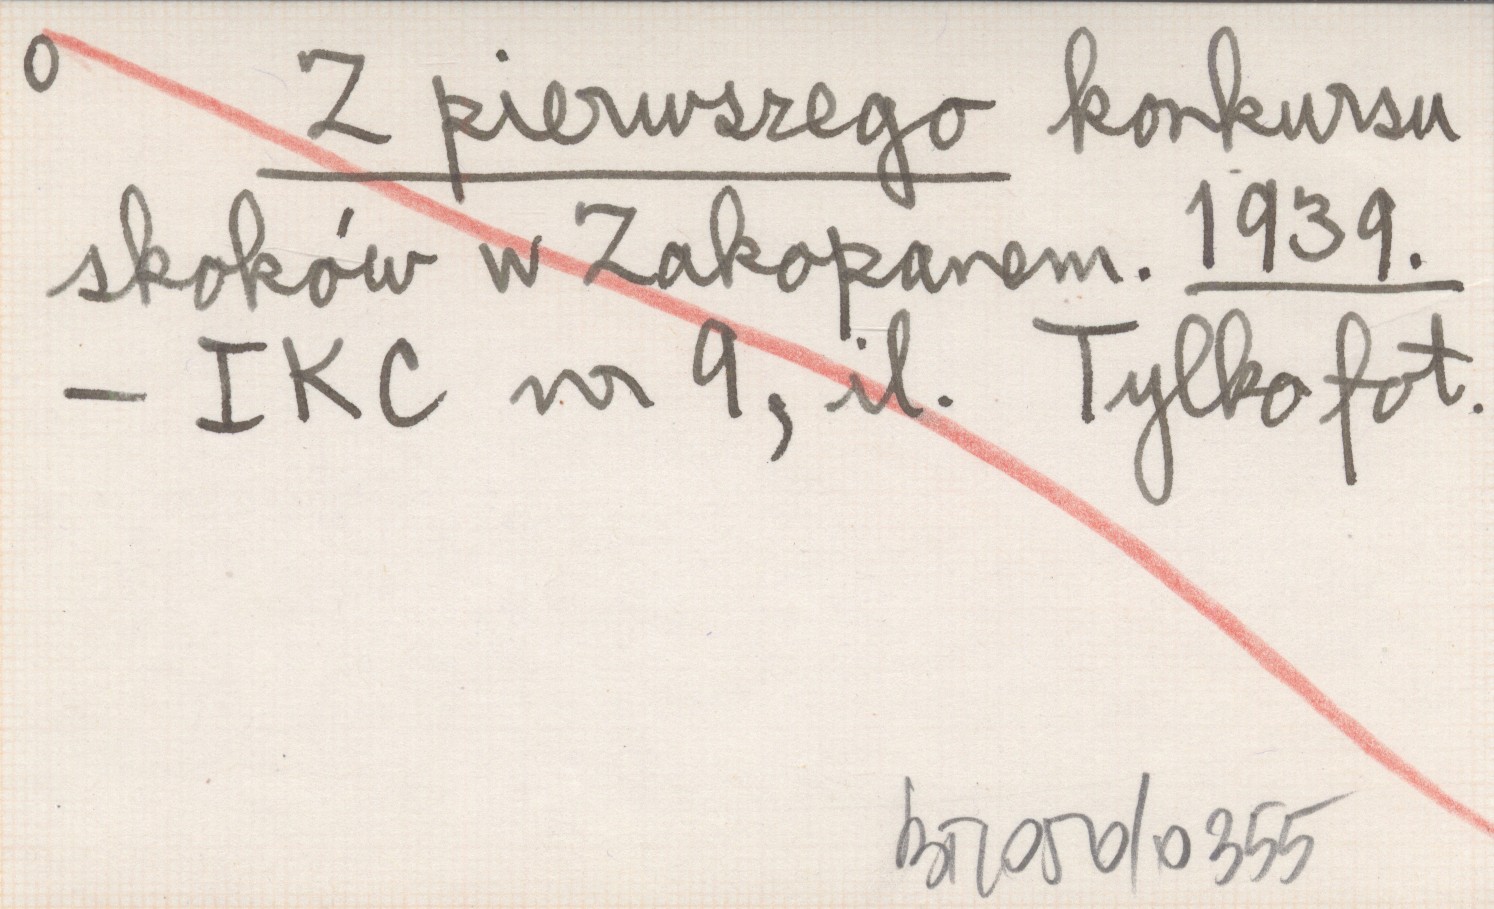 0 Z pierwszego konkursu
skoków w Zakopanem. 1939.
– IKC nr 9, il. Tylko fot.